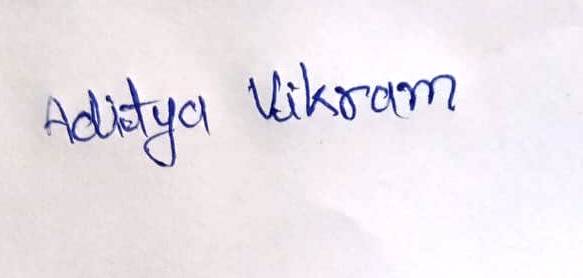 Aditya Vikram